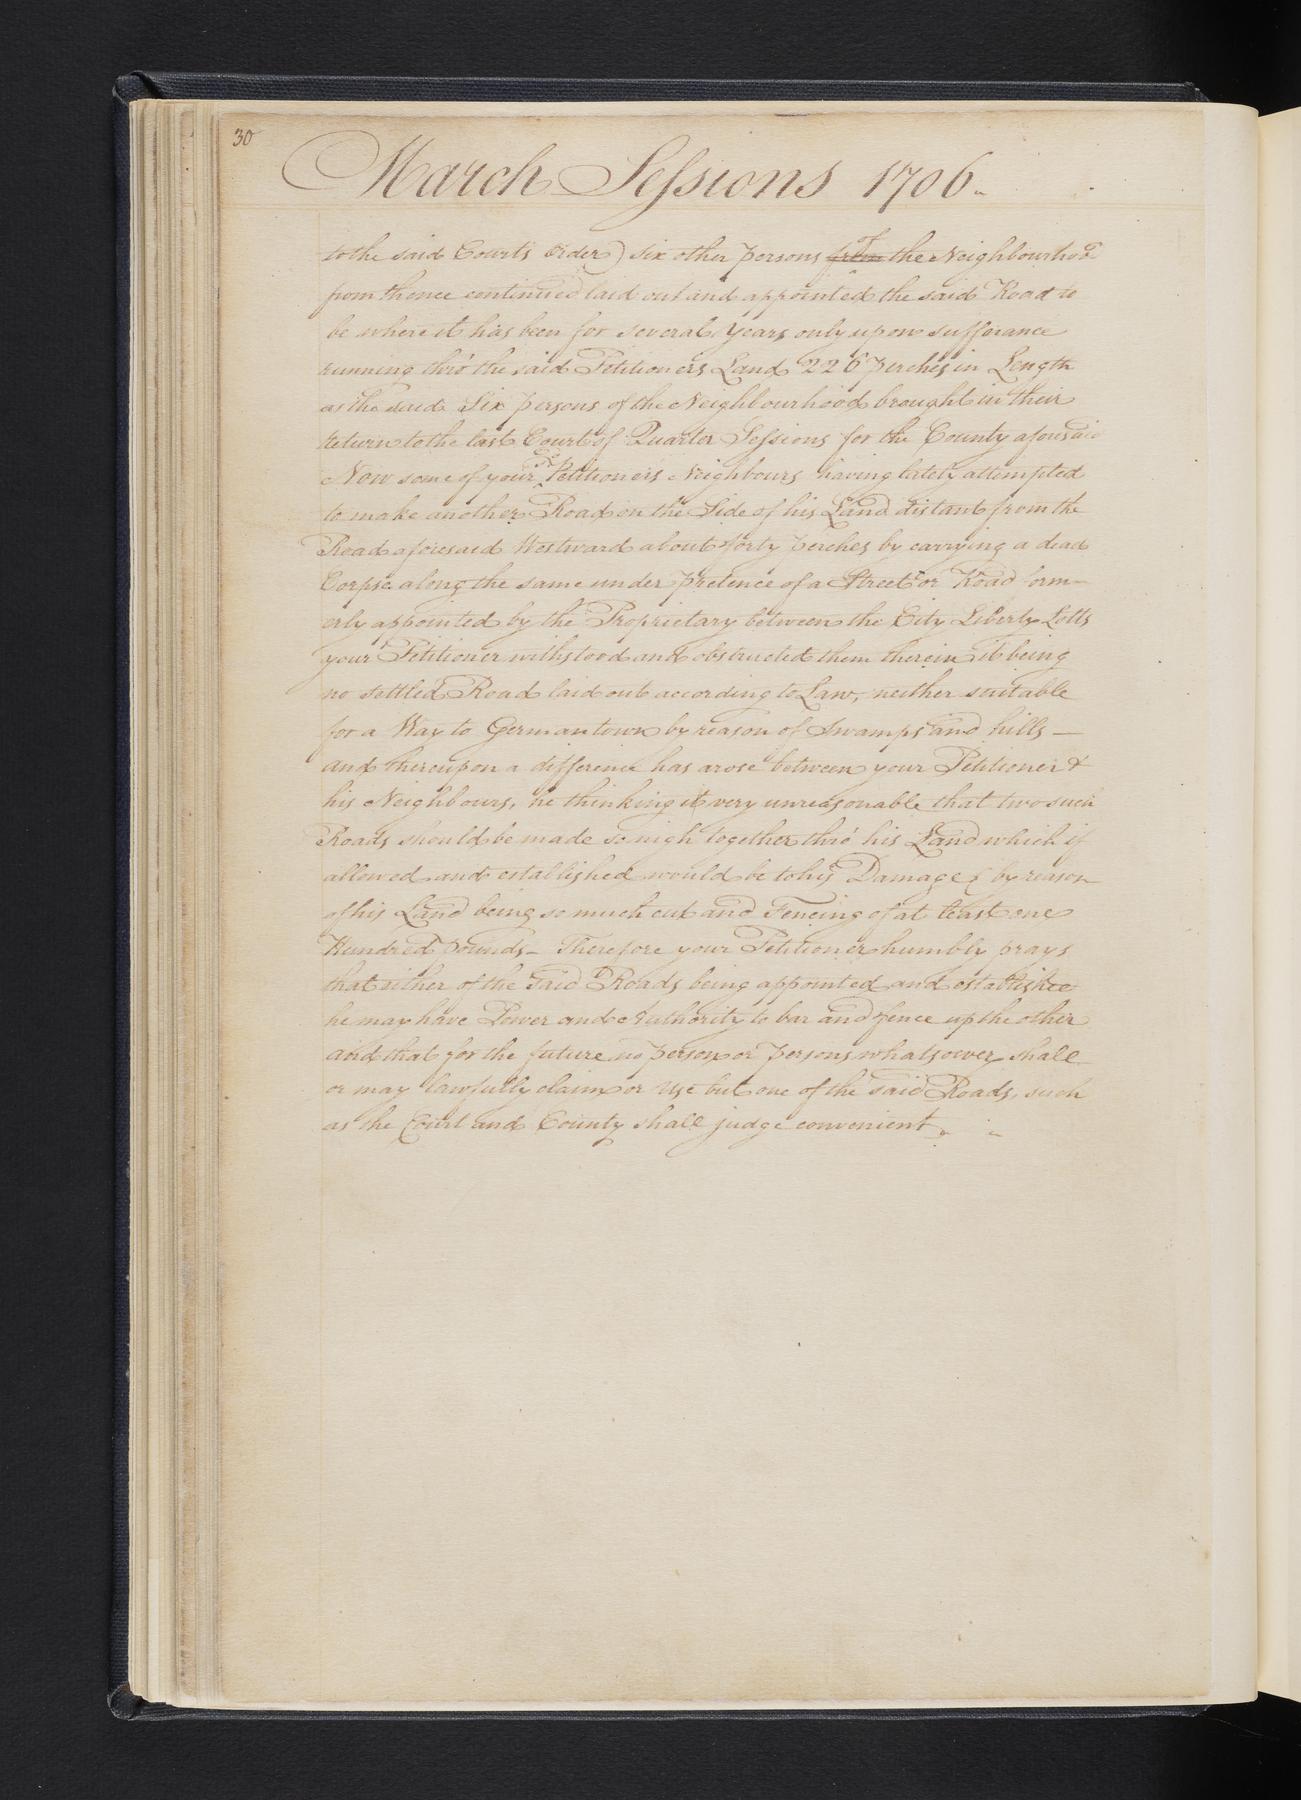 30
March Sessions 1706.
to the said Courts Order) six other persons from of the Neighbourhood
from thence continued laid out and appointed the said Road to
be where it has been for several Years only upon sufferance
running thro' the said Petitioners Land 226 perches in Length
as the said Six persons of the Neighbourhood brought in their
Return to the last Court of Quarter Sessions for the County aforesaid
Now some of your sd Petitioners Neighbours having lately attempted
to make another Road on the Side of his Land distant from the
Road aforesaid Westward about forty perches by carrying a dead
Corpse along the same under pretence of a Street or Road form-
erly appointed by the Proprietary between the City Liberty Lotts
your Petitioner withstood and obstructed them therein it being
no settled Road laid out according to Law, neither suitable
for a Way to Germantown by reason of Swamps and hills —
and thereupon a difference has arose between your Petitioner &
his Neighbours, he thinking it very unreasonable that two such
Roads should be made so nigh together thro' his Land which if
allowed and established would be to his Damage (by reason
of his Land being so much cut and Fencing of at least one
Hundred pounds — Therefore your Petitioner humbly prays
that either of the said Roads being appointed and established
he may have Power and Authority to bar and fence up the other
and that for the future no person or persons whatsoever shall
or may lawfully claim or Use but one of the said Roads, such
as the Court and County shall judge convenient.